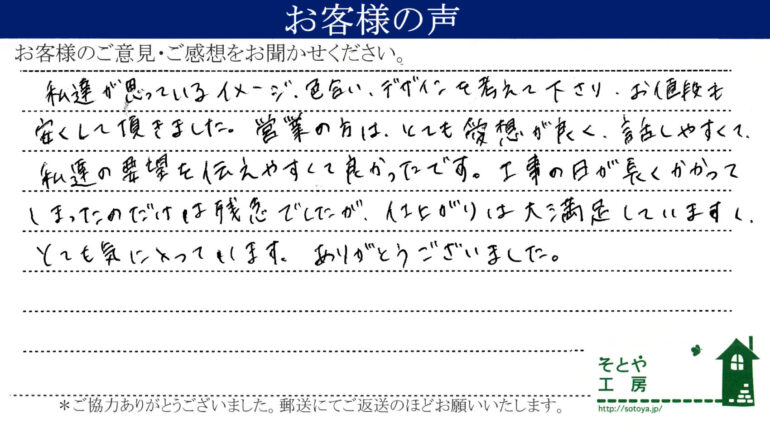 お客様の声
お客様のご意見・ご感想をお聞かせください。
私達が思っているイメージ、色合い、デザインを考えて下さり、お値段も
安くして頂きました。営業の方は、とても愛想が良く、話しやすくて、
私達の要望を伝えやすくて良かったです。工事の日が長くかかって
しまったのだけは残念でしたが、仕上がりは大満足していますし、
とても気に入っています。ありがとうございました。
そとや
工房
http://sotoya.jp/
＊ご協力ありがとうございました。郵送にてご返送のほどお願いいたします。